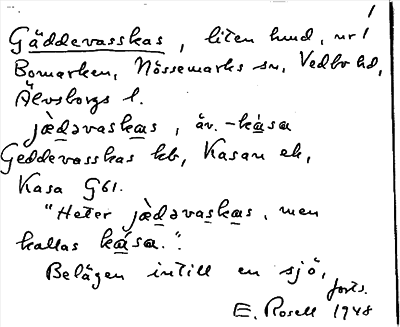 1
Gäddevasskas, liten lund, nr 1
Bomarken, Nössemarks sn, Vedbo hd,
Älvsborgs l.
jæ̀d̲əvask̲as, äv. -ká̲sa
Geddevasskas kb, Kasan ek,
Kasa G61.
"Heter jæ̀d̲əvask̲as, men
kallas ká̲sa.".
Belägen intill en sjö,
forts.
E. Rosell 1948